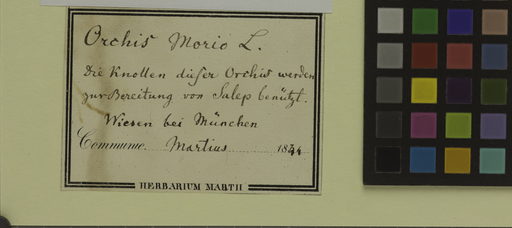 Orchis Morio L.
Die Knollen dieser Orchis werden
zur Bereitung von Salep benützt.
Wiesen bei München
Communic. Martius 1844
HERBARIUM MARTII